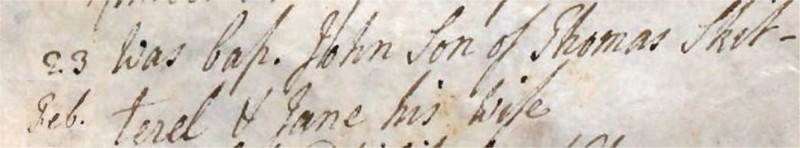 23 was bap. John Son of Thomas Skit-
Feb. terel & Jane his wife